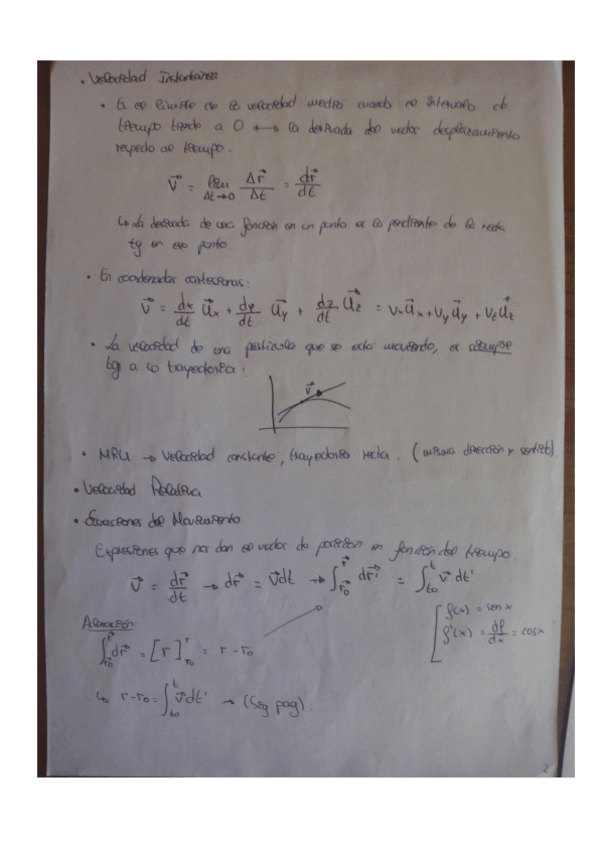 • Velocidad Instantánea
• Es el límite de la velocidad media cuando el intervalo de
tiempo tiende a 0 ⟷ la derivada del vector desplazamiento
respecto al tiempo.
v⃗ = lim Δt→0 Δr⃗/Δt = dr⃗/dt
↳ La derivada de una función en un punto es la pendiente de la recta
tg en ese punto.
• En coordenadas cartesianas:
v⃗ = dx/dt u⃗x + dy/dt u⃗y + dz/dt u⃗z = vx u⃗x + vy u⃗y + vz u⃗z
• La velocidad de una partícula que se está moviendo, es siempre
tg a la trayectoria:
v⃗
• MRU → Velocidad constante, trayectoria recta. (misma dirección y sentido).
• Velocidad Relativa
• Ecuaciones del Movimiento
Expresiones que nos dan el vector de posición en función del tiempo
v⃗ = dr⃗/dt → dr⃗ = v⃗dt → ∫r⃗₀^r⃗ dr⃗' = ∫t₀^t v⃗ dt'
Aclaración:
∫r⃗₀^r⃗ dr⃗ = [r]r₀^r = r - r₀
f(x) = sen x
f'(x) = df/dx = cos x
↳ r - r₀ = ∫t₀^t v⃗dt' → (Sig pag).
2